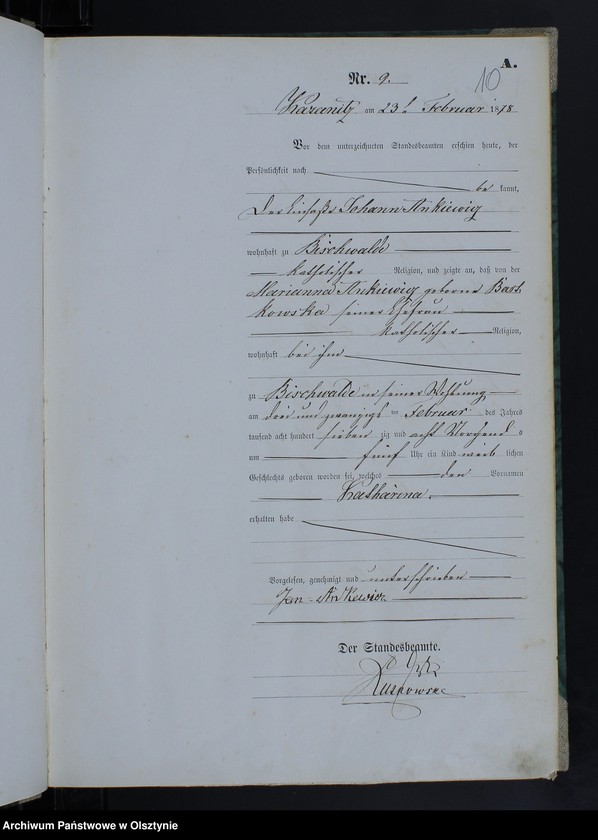 10
A.
Nr. 9.
Kazanitz am 23t Februar 1878
Vor dem unterzeichneten Standesbeamten erschien heute, der
Persönlichkeit nach
be kannt,
Der Einsaße Johann Ankiewiz
wohnhaft zu Bischwalde
katholischer Religion, und zeigte an, daß von der
Marianna Ankiewiz geborne Bart
kowska seiner Ehefrau
katholischer Religion,
wohnhaft bei ihm
zu Bischwalde in seiner Wohnung
am drei und zwanzigst ten Februar des Jahres
tausend acht hundert sieben zig und acht Morgends
um fünf Uhr ein Kind weib lichen
Geschlechts geboren worden sei, welches den Vornamen
Katharina.
erhalten habe
Vorgelesen, genehmigt und unterschrieben
Jan Ankewicz
Der Standesbeamte.
Archiwum Państwowe w Olsztynie